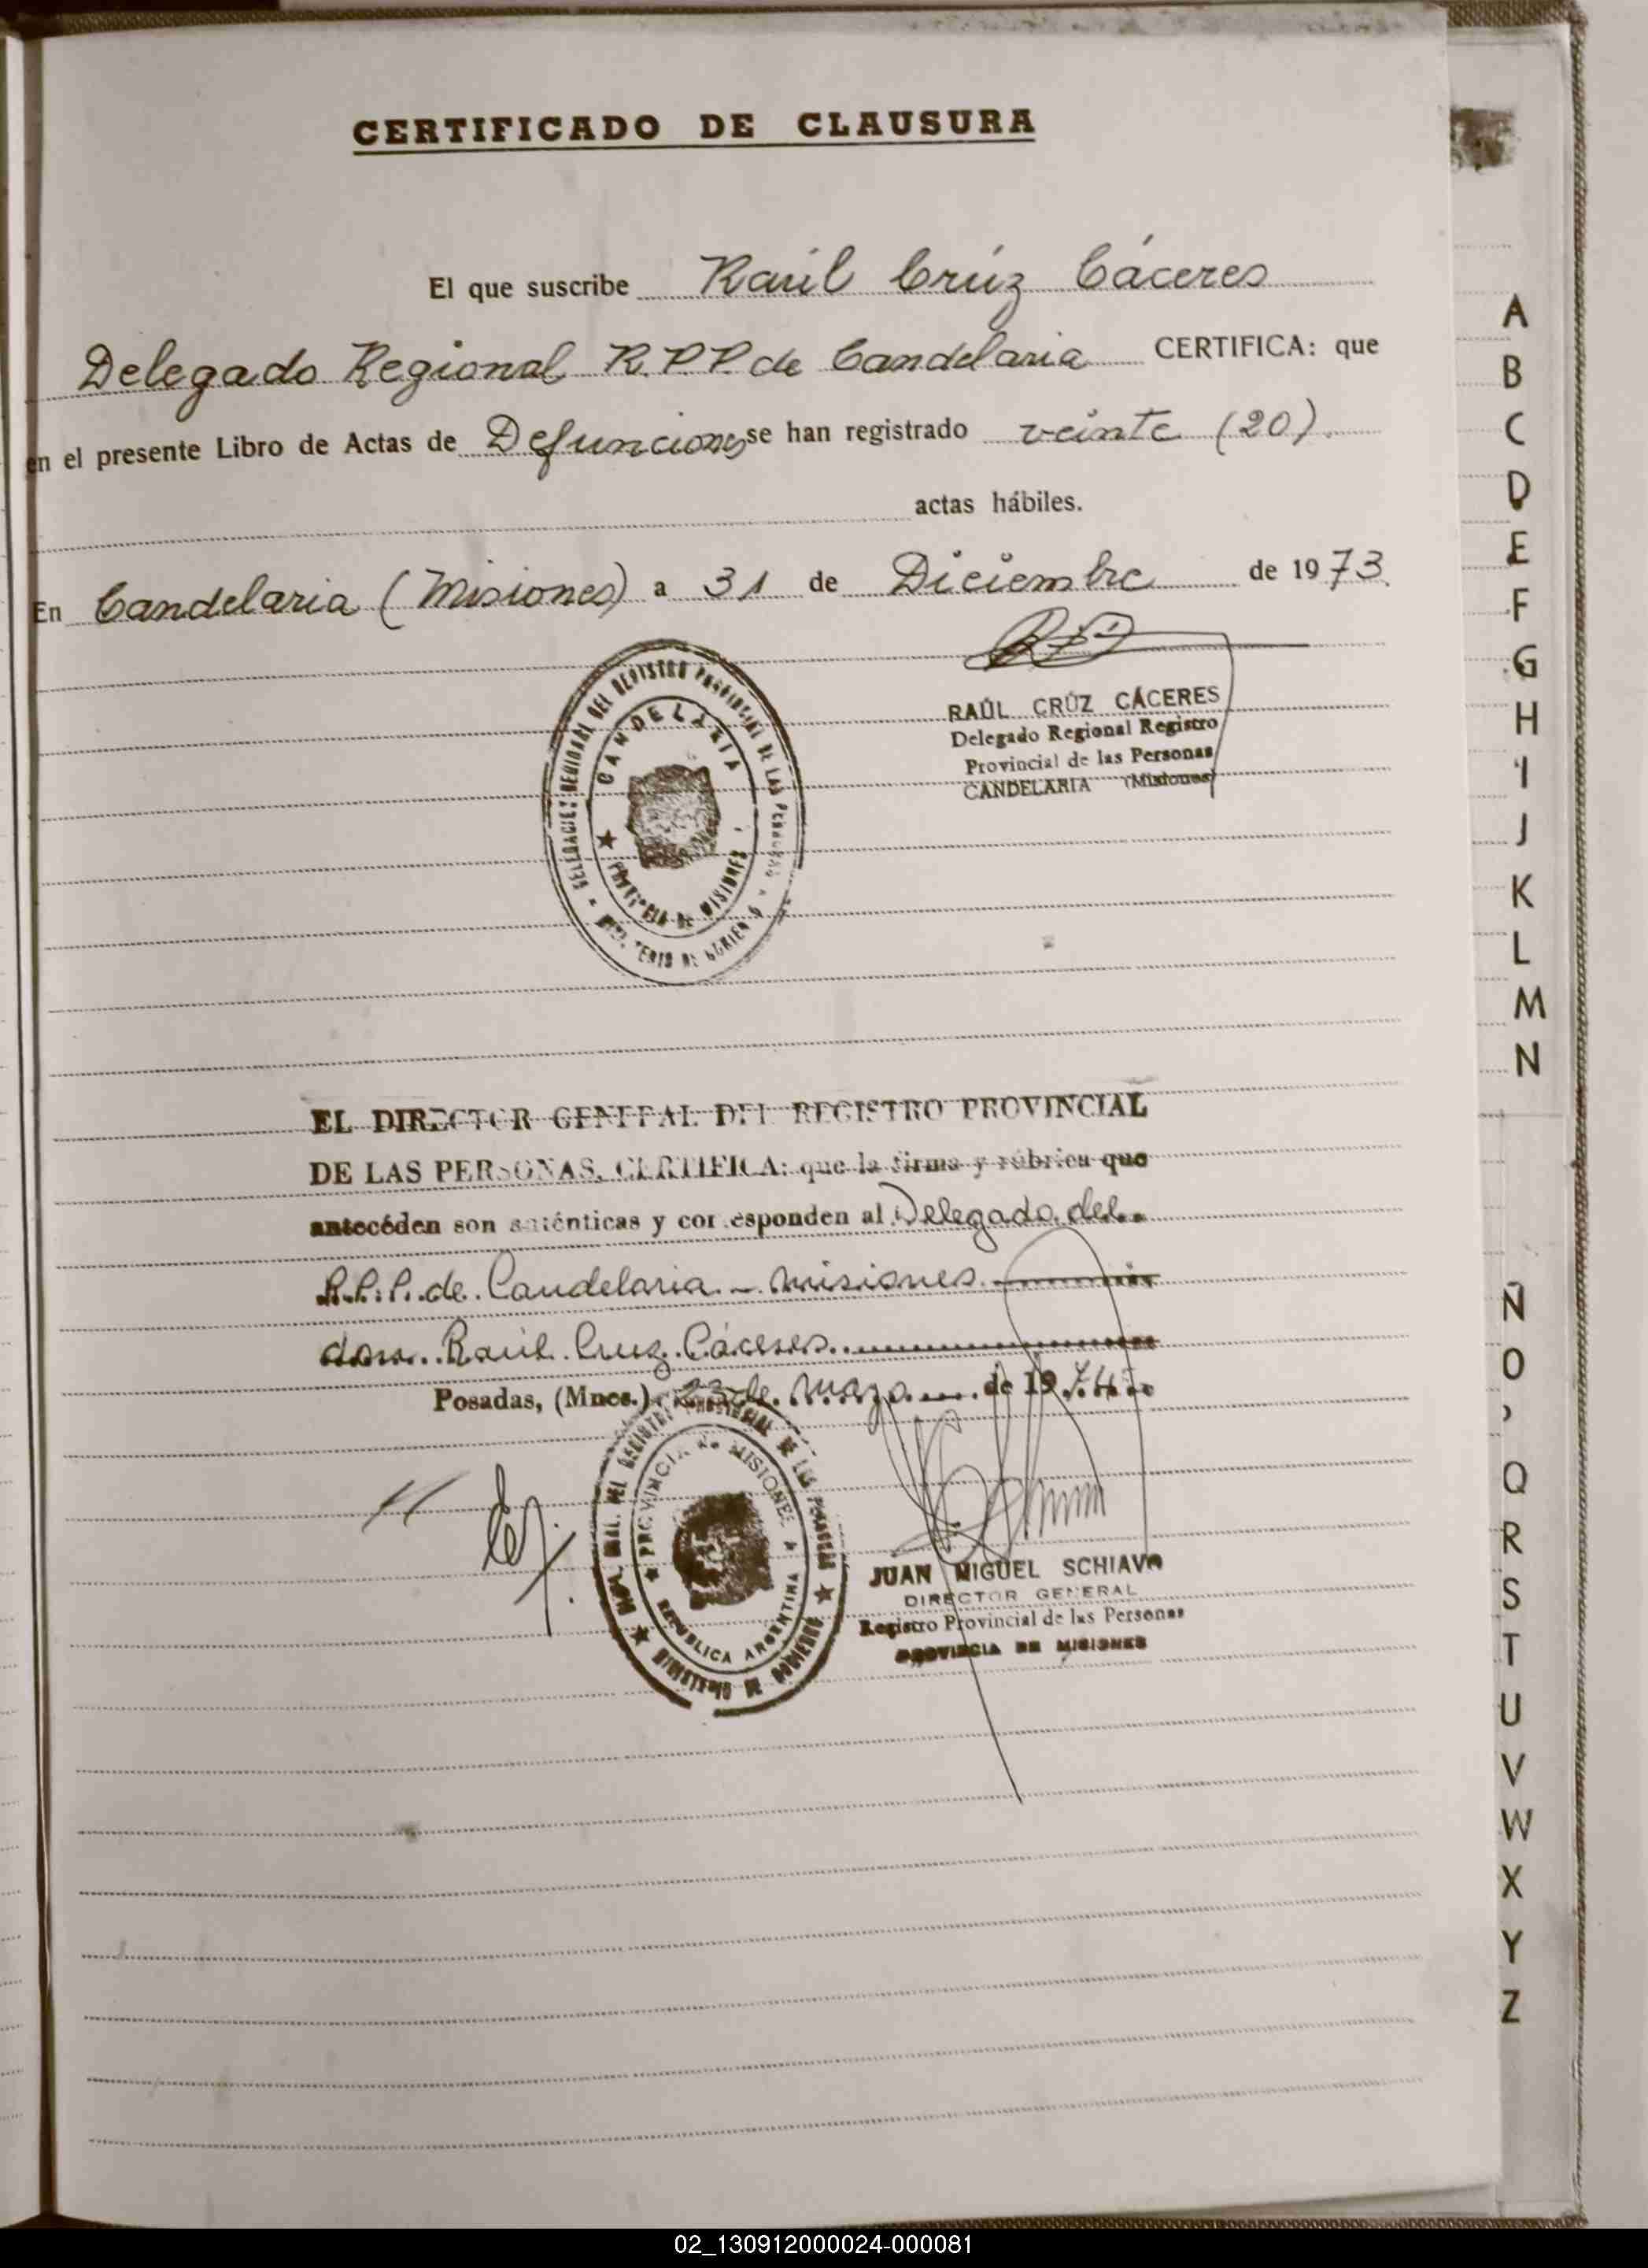 CERTIFICADO DE CLAUSURA
El que suscribe Raúl Crúz Cáceres
Delegado Regional R.P.P. de Candelaria CERTIFICA: que
en el presente Libro de Actas de Defunciones se han registrado veinte (20).
actas hábiles.
En Candelaria (Misiones) a 31 de Diciembre de 1973.
CANDELARIA
PROVINCIA DE MISIONES
RAÚL CRÚZ CÁCERES
Delegado Regional Registro
Provincial de las Personas
CANDELARIA (Misiones)
EL DIRECTOR GENERAL DEL REGISTRO PROVINCIAL
DE LAS PERSONAS, CERTIFICA: que la firma y rúbrica que
antecéden son auténticas y corresponden al Delegado del
R.P.P. de Candelaria - Misiones
don Raúl Cruz Cáceres
Posadas, (Mnes.) 23 de Marzo de 1974
PROVINCIA DE MISIONES
REPUBLICA ARGENTINA
MINISTERIO DE GOBIERNO
JUAN MIGUEL SCHIAVO
DIRECTOR GENERAL
Registro Provincial de las Personas
PROVINCIA DE MISIONES
A
B
C
D
E
F
G
H
I
J
K
L
M
N
Ñ
O
P
Q
R
S
T
U
V
W
X
Y
Z
02_130912000024-000081